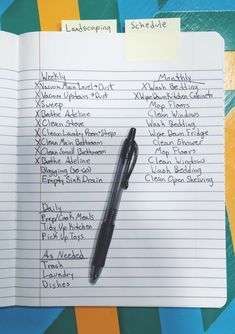 Landscaping
Schedule
Weekly
X Vacuum Main Level + Dust
X Vacuum Upstairs + Dust
X Sweep
X Bathe Adeline
X Clean Stove
X Clean Laundry Room + Steps
X Clean Main Bathroom
X Clean Small Bathroom
X Bathe Adeline
Blogging (30-60)
Empty Sink Drain
Daily
Prep/Cook Meals
Tidy Up Kitchen
Pick Up Toys
As Needed
Trash
Laundry
Dishes
Monthly
X Wash Bedding
X Wipe Down Kitchen Cabinets
Mop Floors
Clean Windows
Wash Bedding
Wipe Down Fridge
Clean Shower
Mop Floors
Clean Windows
Wash Bedding
Clean Open Shelving